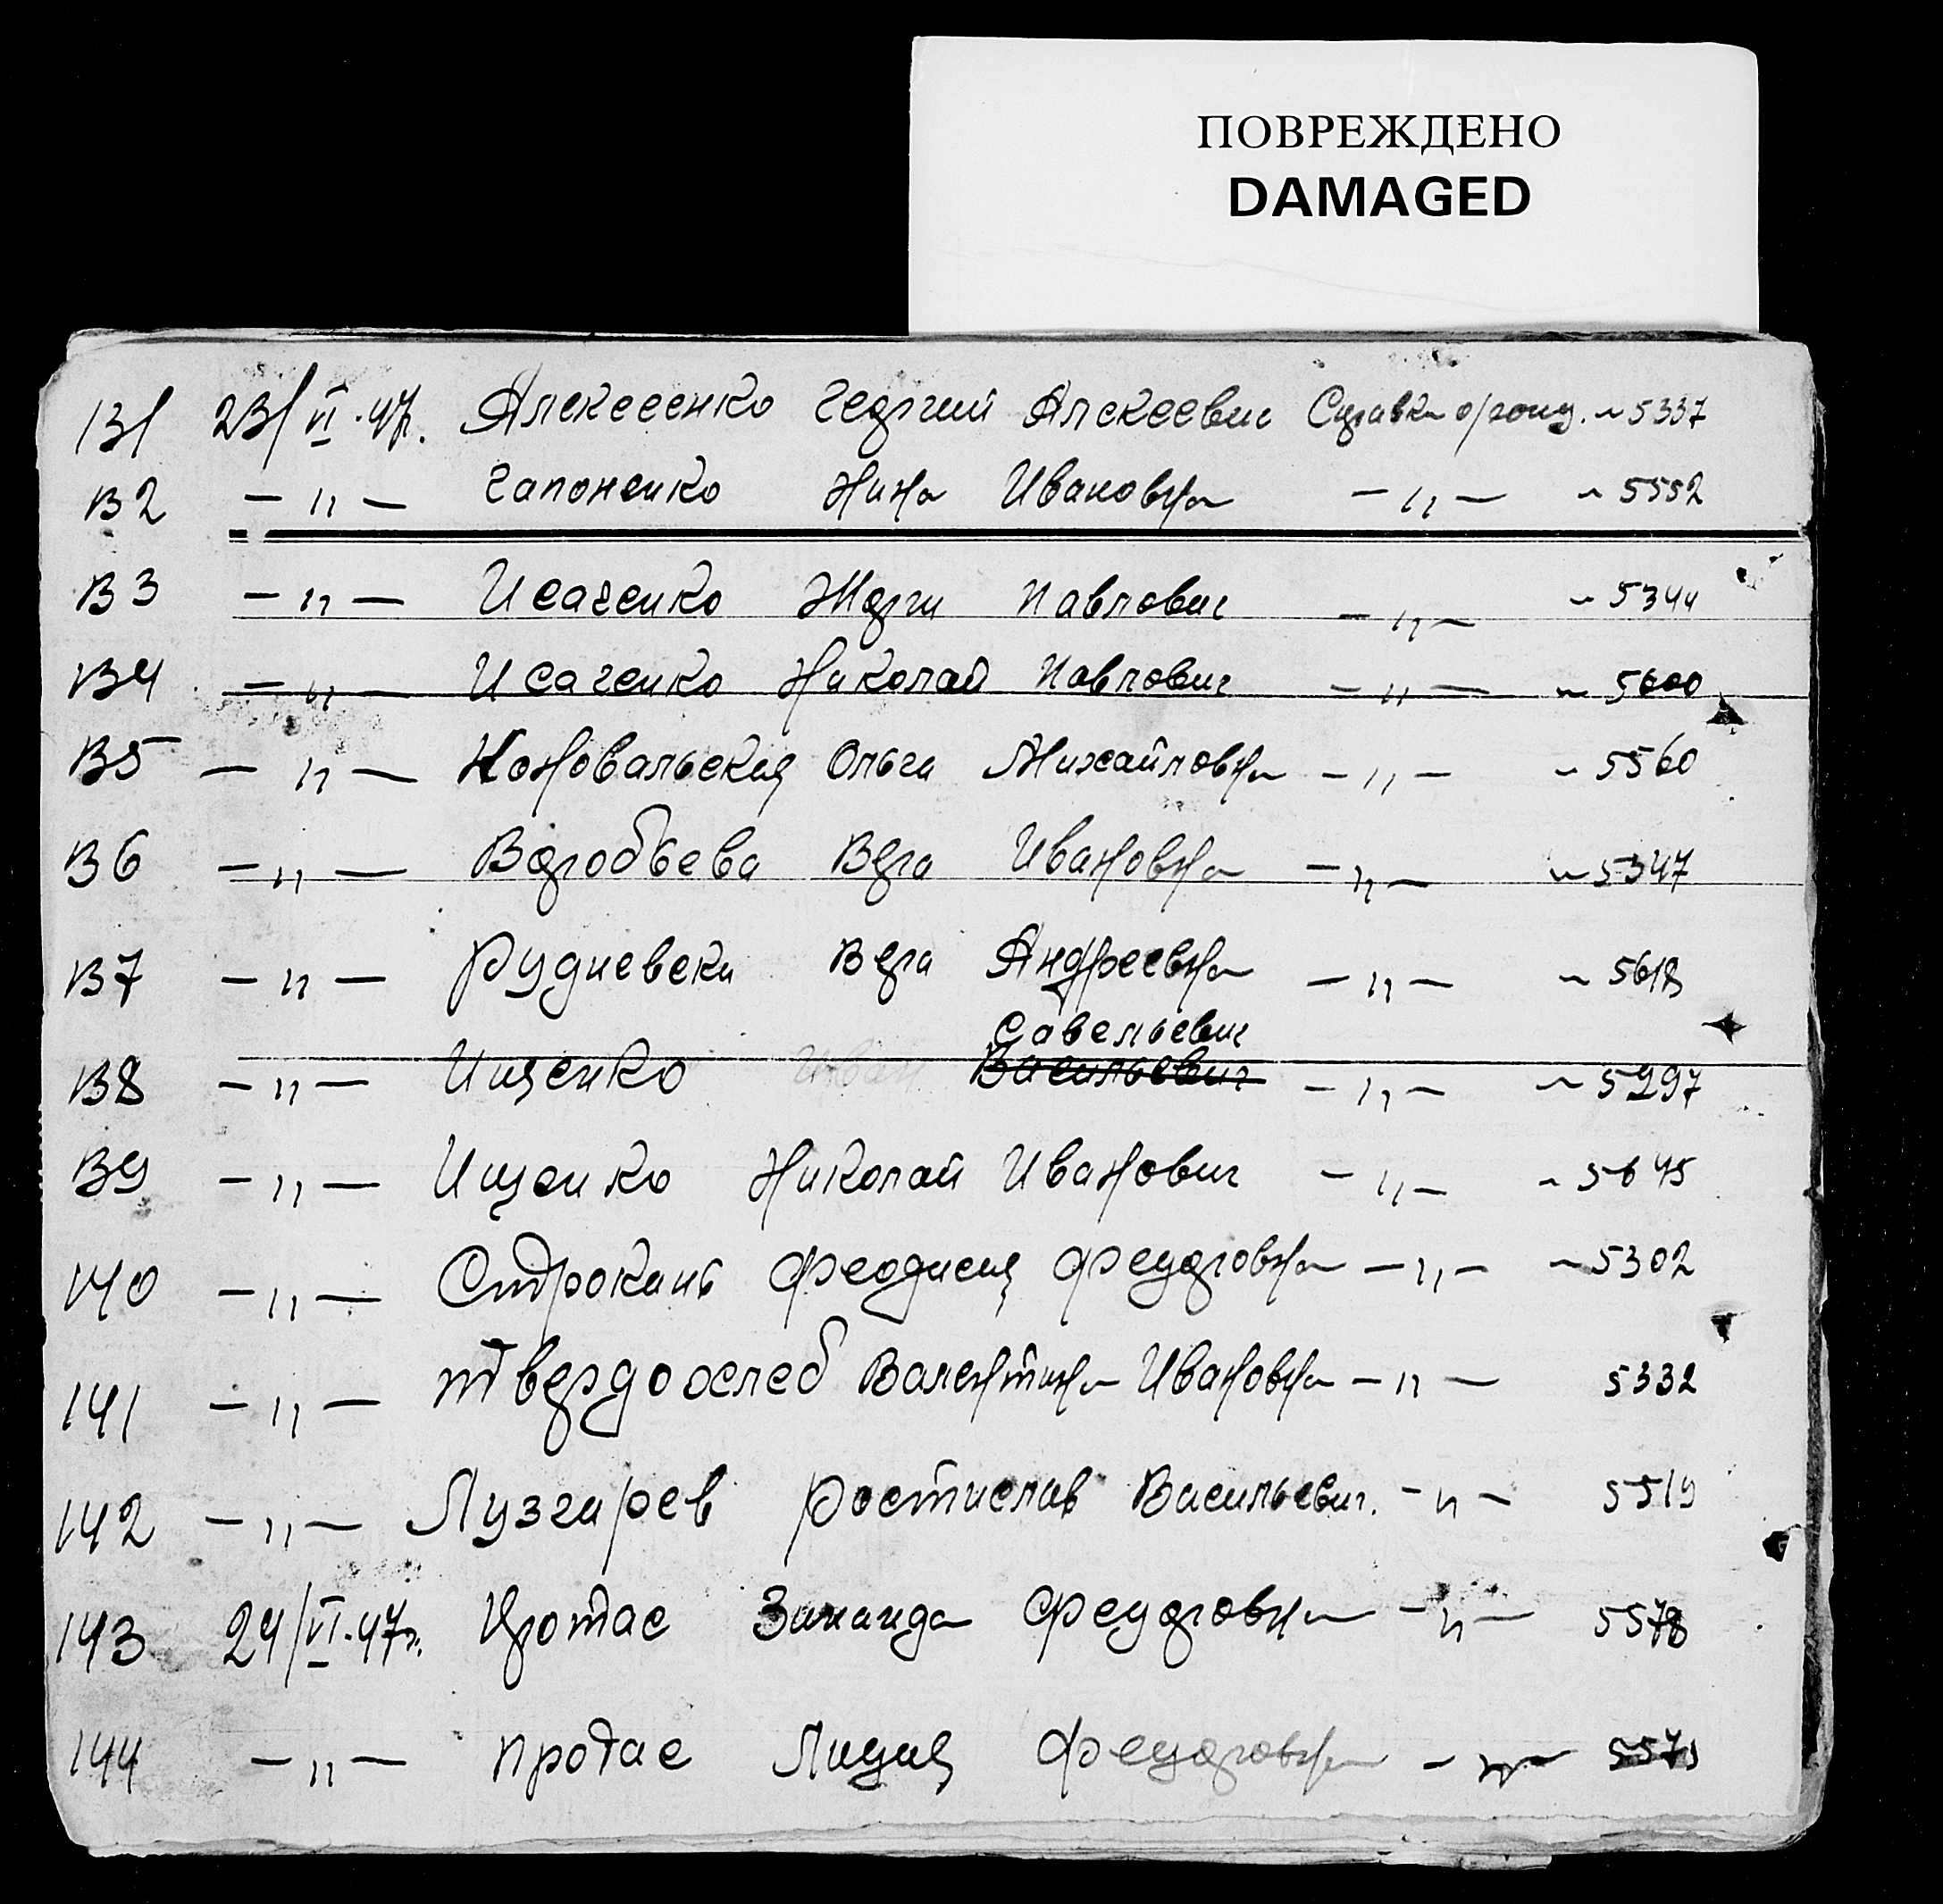 ПОВРЕЖДЕНО
DAMAGED
131 23/VI.47г. Алексеенко Георгий Алексеевич Справка о/рожд. ~ 5337
132 —„— Гапоненко Нина Ивановна —„— ~ 5552
133 —„— Исаченко Жорж Павлович —„— ~ 5344
134 —„— Исаченко Николай Павлович —„— ~ 5600
135 —„— Коновальская Ольга Михайловна —„— ~ 5560
136 —„— Воробьева Вера Ивановна —„— ~ 5347
137 —„— Рудневска Вера Андреевна —„— ~ 5618
Савельевич
138 —„— Ищенко Иван Васильевич —„— ~ 5297
139 —„— Ищенко Николай Иванович —„— ~ 5645
140 —„— Строкань Феодисия Федоровна —„— ~ 5302
141 —„— Твердохлеб Валентина Ивановна —„— 5332
142 —„— Лузгарев Ростислав Васильевич. —„— 5519
143 24/VI.47г. Протас Зинаида Федоровна —„— 5578
144 —„— Протас Лидия Федоровна —„—